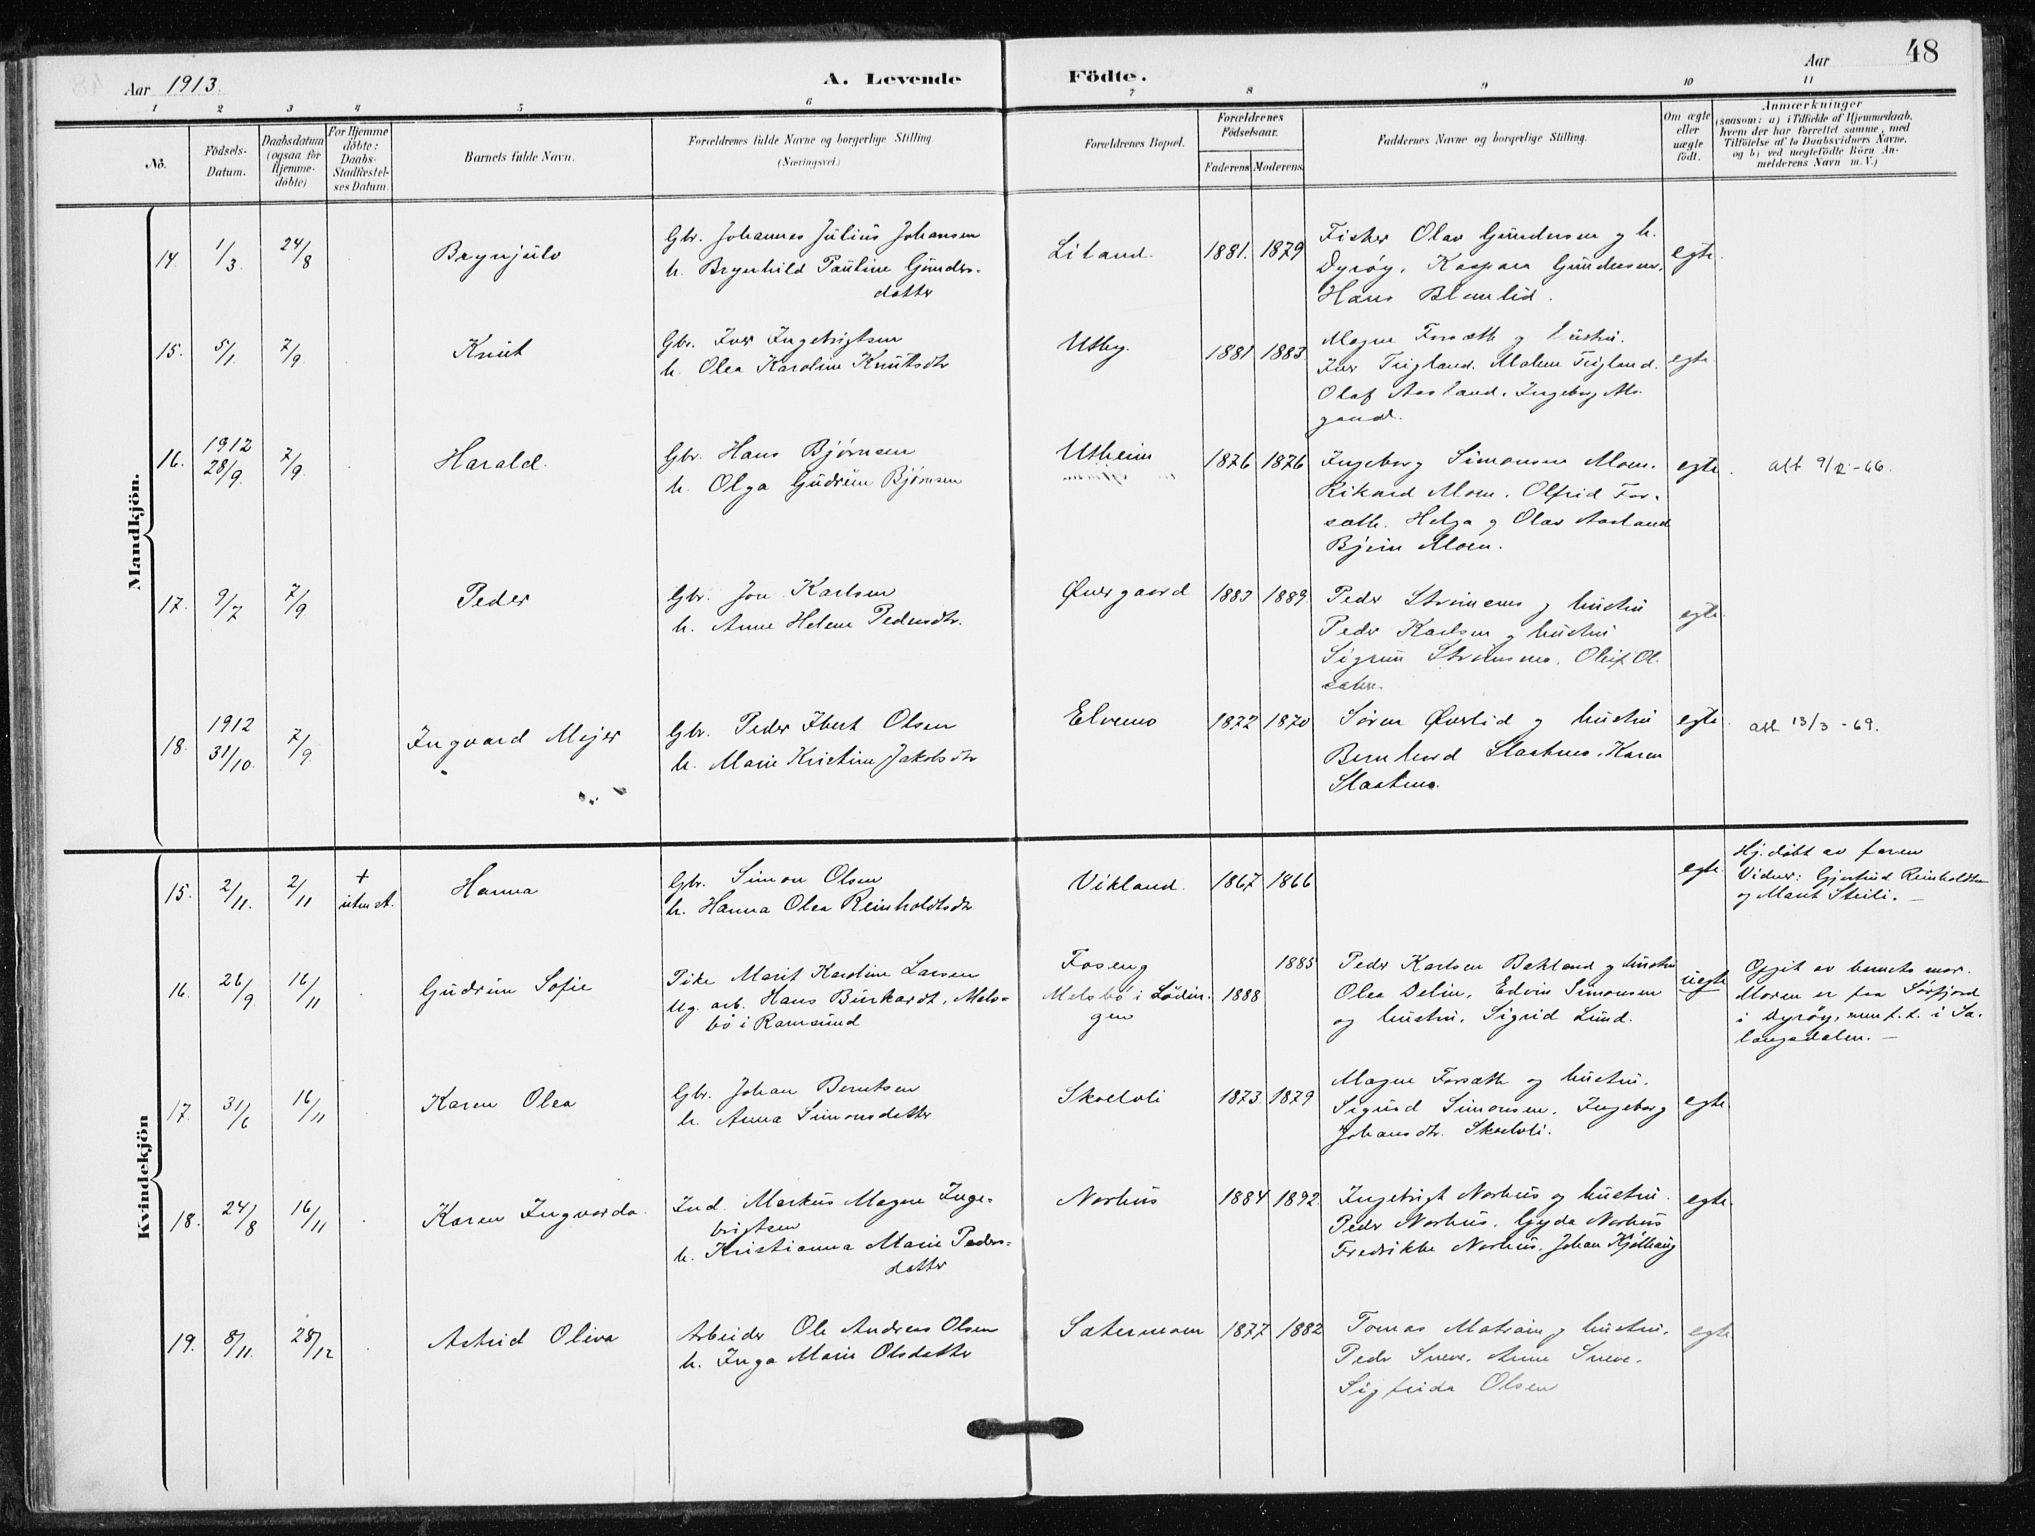 48
Aar 1913.
A. Levende
Födte.
Aar
1 2 3 4 5 6 7 8 9 10 11
No.
Födsels-Datum.
Daabsdatum (ogsaa for Hjemme-döbte)
For Hjemme döbte: Daabs-Stadfæstel-ses Datum.
Barnets fulde Navn.
Forældrenes fulde Navne og borgerlige Stilling
(Næringsvei.)
Forældrenes Bopæl.
Forældrenes Födselsaar.
Faderens Moderens
Faddernes Navne og borgerlige Stilling.
Om ægte eller uægte födt.
Anmærkninger
(saasom: a) i Tilfælde af Hjemmedaab,
hvem der har forrettet samme, med
Tilföielse af to Daabsvidners Navne,
og b) ved uægtefödte Börn An-
melderens Navn m. V.)
Mandkjön.
14. 1/3 24/8 Brynjulv
Gbr. Johannes Julius Johansen
h. Brynhild Pauline Gunders-
datter
Liland. 1881. 1879
Fisker Olav Gundersen g h.
Dyrøy, Kaspara Gundersen,
Hans Blomlid.
egte.
15. 5/1. 7/9. Knut
Gbr. Iver Ingebrigtsen
h. Olea Karoline Knutsdtr
Utby. 1881 1883.
Magne Forsæth og hustru.
Iver Teigland. Malene Teigland.
Olaf Aasland. Ingeborg Mo.
egte.
16. 1912 28/9. 7/9. Harald.
Gbr. Hans Bjørnsen
h. Olga Gudrun Bjørnsen
Utheim 1876 1876
Ingeborg Simonsen Moen.
Rikard Moen. Olfrid For-
sæth. Helga g Olav Aasland
Bjørn Moen.
egte.
att 9/2-66.
17. 9/7 7/9 Peder
Gbr. Jon Karlsen
h. Anne Helene Pedersdtr.
Øvergaard 1883 1889.
Peder Strømsnes g hustru
Peder Karlsen g hustru
Sigrun Strømsnes. Oluf Ol.
egte.
18. 1912 31/10. 7/9. Ingvard Mejer
Gbr. Peder Ibert Olsen
h. Marie Kristine Jakobsdtr
Elvemo 1872 1870
Søren Øverlid g hustru
Bernhard Slaatmo. Karen
Slaatmo.
egte.
att 13/3-69.
Kvindekjön
15. 2/11. 2/11 + uten st. Hanna
Gbr. Simon Olsen
h. Hanna Olea Reinholdtsdtr.
Vikland. 1867 1866
egte.
Hj.døbt av faren
Vidner: Gjertrud Reinholdtsen
og Marit Steili.—
16. 26/9 16/11 Gudrun Sofie
Pike Marit Karoline Larsen
Ug. arb. Hans Burkardt, Mels-
bø i Ramsund
Foseng 1885
Melsbø i Lødin- 1888
gen
Peder Karlsen Bekland g hustru
Olea Delin, Edvin Simonsen
og hustru, Sigrid Lund.
uegte
Opgit av barnets mor.
Moren er fra Sørfjord
i Dyrøy, men f.t. i Sa-
langsdalen.—
17. 31/6 16/11 Karen Olea
Gbr. Johan Berntsen
h. Anna Simonsdatter
Skoelvli 1873. 1879
Magne Forsæth og hustru.
Sigurd Simonsen. Ingeborg
Johansdtr. Skoelvli.
egte.
18. 24/8 16/11 Karen Ingvarda.
Ind. Markus Magne Inge-
brigtsen
h. Kristianna Marie Peders-
datter
Norhus 1884 1892.
Ingebrigt Norhus og hustru.
Peder Norhus. Gyda Norhus
Fredrikke Norhus. Johan Kjølhaug
egte.
19. 8/11. 28/12 Astrid Oliva
Arbeider Ole Andreas Olsen
h. Inga Marie Olsdatter
Sætermoen 1877 1882
Tomas Moträin g hustru.
Peder Sneve. Anne Sneve.
Sigfrida Olsen
egte